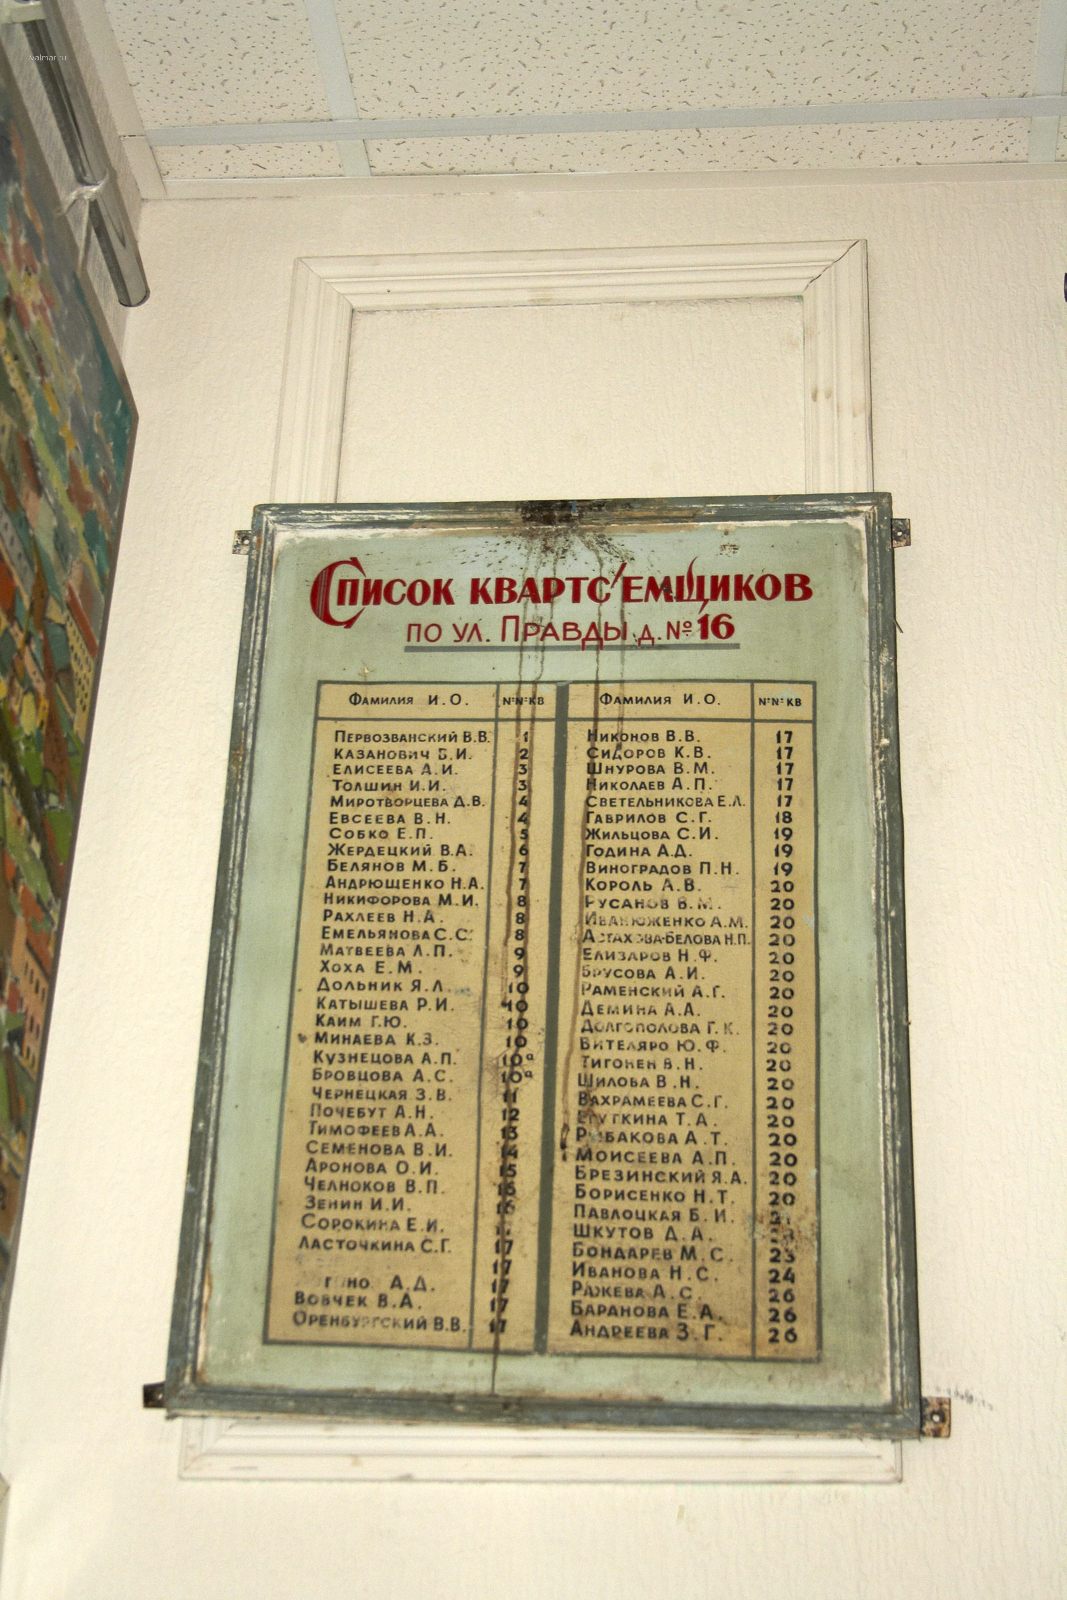 valmar.ru
Список квартс'емщиков
по ул. Правды д. №16
Фамилия И.О. №№кв
Первозванский В.В. 1
Казанович Б.И. 2
Елисеева А.И. 3
Толшин И.И. 3
Миротворцева Д.В. 4
Евсеева В.Н. 4
Собко Е.П. 5
Жердецкий В.А. 6
Белянов М.Б. 7
Андрющенко Н.А. 7
Никифорова М.И. 8
Рахлеев Н.А. 8
Емельянова С.С. 8
Матвеева Л.П. 9
Хоха Е.М. 9
Дольник Я.Л. 10
Катышева Р.И. 10
Каим Г.Ю. 10
Минаева К.З. 10
Кузнецова А.П. 10а
Бровцова А.С. 10а
Чернецкая З.В. 11
Почебут А.Н. 12
Тимофеев А.А. 13
Семенова В.И. 14
Аронова О.И. 15
Челноков В.П. 16
Зенин И.И. 16
Сорокина Е.И.
Ласточкина С.Г. 17
17
А.Д. 17
Вовчек В.А. 17
Оренбургский В.В. 17
Фамилия И.О. №№кв
Никонов В.В. 17
Сидоров К.В. 17
Шнурова В.М. 17
Николаев А.П. 17
Светельникова Е.Л. 17
Гаврилов С.Г. 18
Жильцова С.И. 19
Година А.Д. 19
Виноградов П.Н. 19
Король А.В. 20
Русанов В.М. 20
Иванюженко А.М. 20
Астахова-Белова Н.П. 20
Елизаров Н.Ф. 20
Брусова А.И. 20
Раменский А.Г. 20
Демина А.А. 20
Долгополова Г.К. 20
Вителяро Ю.Ф. 20
Тигонен В.Н. 20
Шилова В.Н. 20
Вахрамеева С.Г. 20
Т.А. 20
Рыбакова А.Т. 20
Моисеева А.П. 20
Брезинский Я.А. 20
Борисенко Н.Т. 20
Павлоцкая Б.И.
Шкутов Д.А.
Бондарев М.С. 23
Иванова Н.С. 24
Ражева А.С. 26
Баранова Е.А. 26
Андреева З.Г. 26